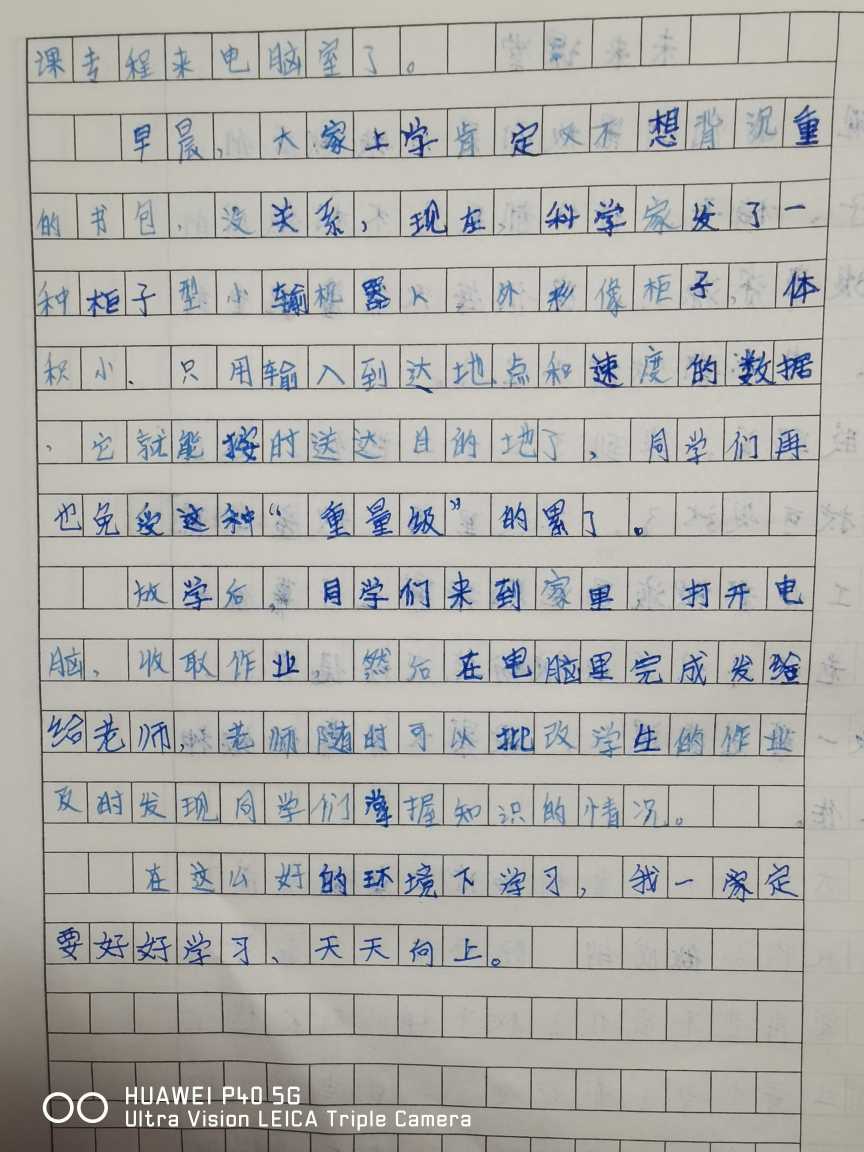 课专程来电脑室了。
早晨,大家上学肯定不想背沉重
的书包,没关系,现在,科学家发了一
种柜子型小输机器人,外形像柜子,体
积小、只用输入到达地点和速度的数据
、它就能按时送达目的地了,同学们再
也免受这种“重量级”的累了。
放学后,同学们来到家里,打开电
脑、收取作业,然后在电脑里完成发给
给老师,老师随时可以批改学生的作业
及时发现同学们掌握知识的情况。
在这么好的环境下学习,我一定
要好好学习、天天向上。
HUAWEI P40 5G
Ultra Vision LEICA Triple Camera